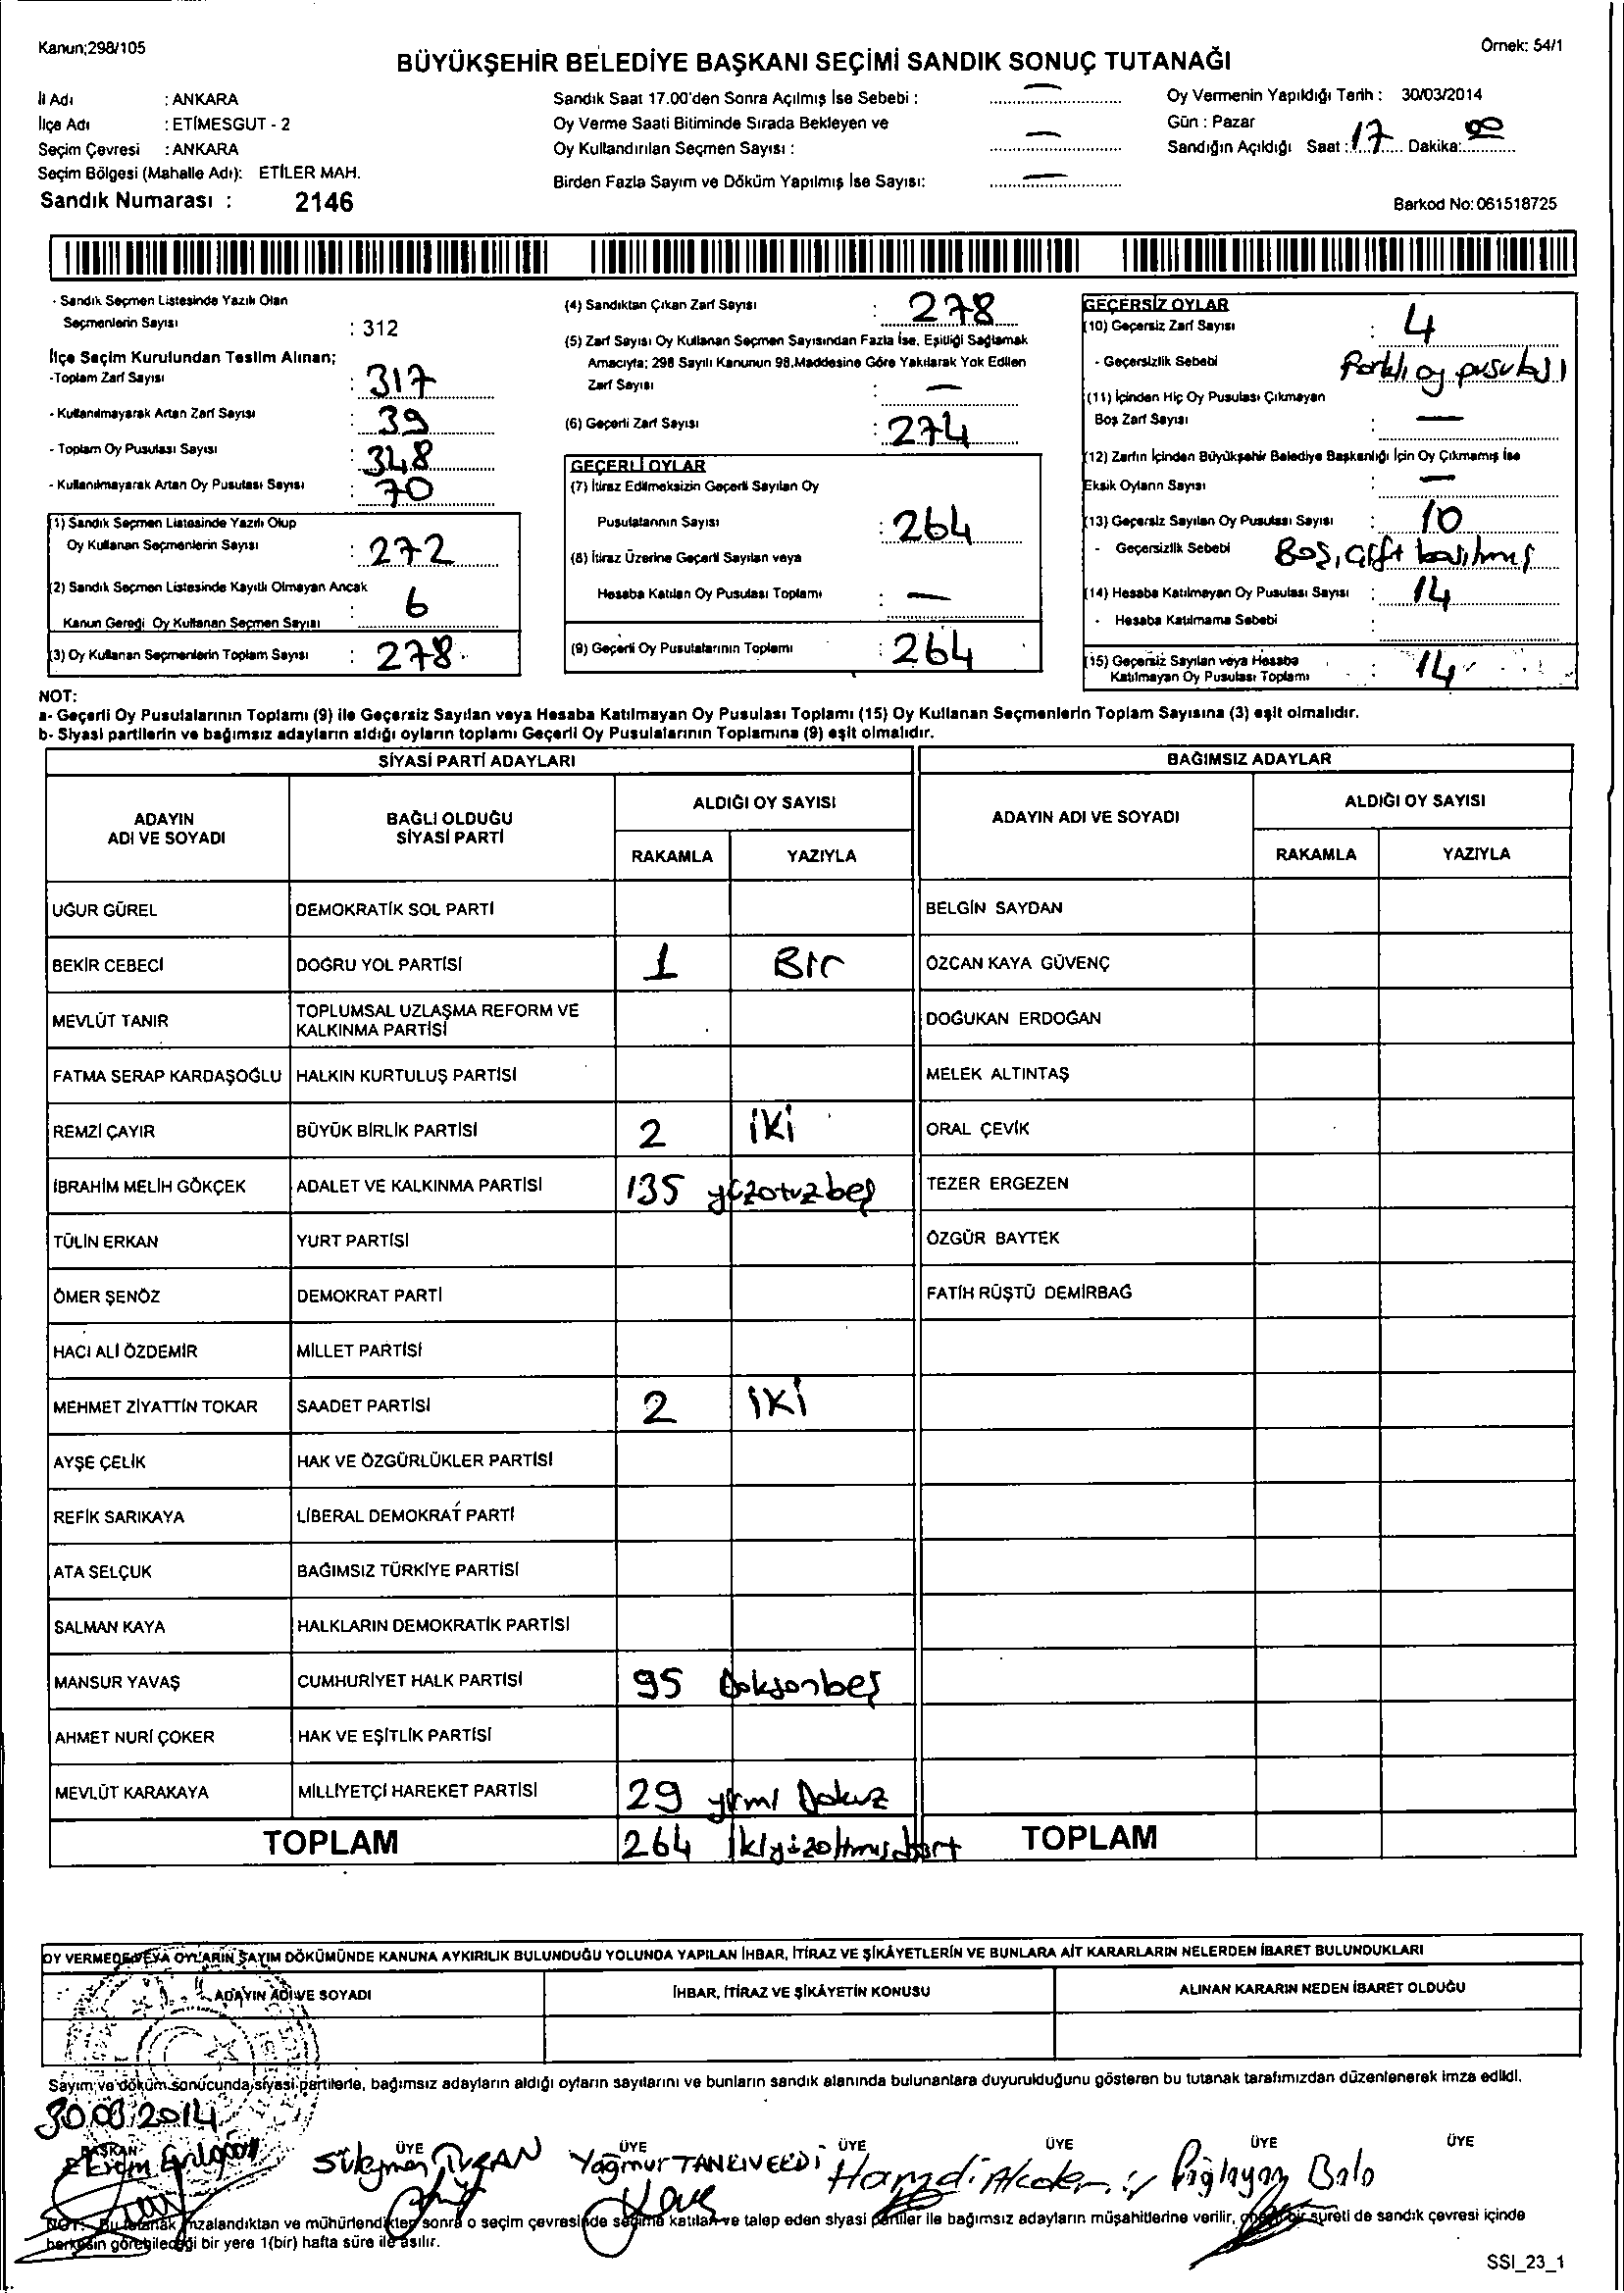 Kanun;298/105
Örnek: 54/1
BÜYÜKŞEHİR BELEDİYE BAŞKANI SEÇİMİ SANDIK SONUÇ TUTANAĞI
İl Adı : ANKARA
İlçe Adı : ETİMESGUT - 2
Seçim Çevresi : ANKARA
Seçim Bölgesi (Mahalle Adı): ETİLER MAH.
Sandık Numarası : 2146
Sandık Saat 17.00'den Sonra Açılmış İse Sebebi : —
Oy Verme Saati Bitiminde Sırada Bekleyen ve
Oy Kullandırılan Seçmen Sayısı : —
Birden Fazla Sayım ve Döküm Yapılmış İse Sayısı: —
Oy Vermenin Yapıldığı Tarih : 30/03/2014
Gün : Pazar
Sandığın Açıldığı Saat : 17 Dakika: 00
Barkod No: 061518725
- Sandık Seçmen Listesinde Yazılı Olan
Seçmenlerin Sayısı : 312
İlçe Seçim Kurulundan Teslim Alınan;
-Toplam Zarf Sayısı : 317
- Kullanılmayarak Artan Zarf Sayısı : 39
- Toplam Oy Pusulası Sayısı : 348
- Kullanılmayarak Artan Oy Pusulası Sayısı : 70
(1) Sandık Seçmen Listesinde Yazılı Olup
Oy Kullanan Seçmenlerin Sayısı : 272
(2) Sandık Seçmen Listesinde Kayıtlı Olmayan Ancak
Kanun Gereği Oy Kullanan Seçmen Sayısı : 6
(3) Oy Kullanan Seçmenlerin Toplam Sayısı : 278
(4) Sandıktan Çıkan Zarf Sayısı : 278
(5) Zarf Sayısı Oy Kullanan Seçmen Sayısından Fazla İse, Eşitliği Sağlamak
Amacıyla; 298 Sayılı Kanunun 98.Maddesine Göre Yakılarak Yok Edilen
Zarf Sayısı : —
(6) Geçerli Zarf Sayısı : 274
GEÇERLİ OYLAR
(7) İtiraz Edilmeksizin Geçerli Sayılan Oy
Pusulalarının Sayısı : 264
(8) İtiraz Üzerine Geçerli Sayılan veya
Hesaba Katılan Oy Pusulası Toplamı : —
(9) Geçerli Oy Pusulalarının Toplamı : 264
GEÇERSİZ OYLAR
(10) Geçersiz Zarf Sayısı : 4
- Geçersizlik Sebebi Farklı oy pusulası
(11) İçinden Hiç Oy Pusulası Çıkmayan
Boş Zarf Sayısı : —
(12) Zarfın İçinden Büyükşehir Belediye Başkanlığı İçin Oy Çıkmamış İse
Eksik Oyların Sayısı : —
(13) Geçersiz Sayılan Oy Pusulası Sayısı : 10
- Geçersizlik Sebebi Boş, çift basılmış
(14) Hesaba Katılmayan Oy Pusulası Sayısı : 14
- Hesaba Katılmama Sebebi :
(15) Geçersiz Sayılan veya Hesaba
Katılmayan Oy Pusulası Toplamı : 14
NOT:
a- Geçerli Oy Pusulalarının Toplamı (9) ile Geçersiz Sayılan veya Hesaba Katılmayan Oy Pusulası Toplamı (15) Oy Kullanan Seçmenlerin Toplam Sayısına (3) eşit olmalıdır.
b- Siyasi partilerin ve bağımsız adayların aldığı oyların toplamı Geçerli Oy Pusulalarının Toplamına (9) eşit olmalıdır.
SİYASİ PARTİ ADAYLARI BAĞIMSIZ ADAYLAR
ADAYIN
ADI VE SOYADI
BAĞLI OLDUĞU
SİYASİ PARTİ
ALDIĞI OY SAYISI
RAKAMLA YAZIYLA
ADAYIN ADI VE SOYADI
ALDIĞI OY SAYISI
RAKAMLA YAZIYLA
UĞUR GÜREL DEMOKRATİK SOL PARTİ BELGİN SAYDAN
BEKİR CEBECİ DOĞRU YOL PARTİSİ 1 Bir ÖZCAN KAYA GÜVENÇ
MEVLÜT TANIR TOPLUMSAL UZLAŞMA REFORM VE
KALKINMA PARTİSİ DOĞUKAN ERDOĞAN
FATMA SERAP KARDAŞOĞLU HALKIN KURTULUŞ PARTİSİ MELEK ALTINTAŞ
REMZİ ÇAYIR BÜYÜK BİRLİK PARTİSİ 2 iki ORAL ÇEVİK
İBRAHİM MELİH GÖKÇEK ADALET VE KALKINMA PARTİSİ 135 yüzotuzbeş TEZER ERGEZEN
TÜLİN ERKAN YURT PARTİSİ ÖZGÜR BAYTEK
ÖMER ŞENÖZ DEMOKRAT PARTİ FATİH RÜŞTÜ DEMİRBAĞ
HACI ALİ ÖZDEMİR MİLLET PARTİSİ
MEHMET ZİYATTİN TOKAR SAADET PARTİSİ 2 iki
AYŞE ÇELİK HAK VE ÖZGÜRLÜKLER PARTİSİ
REFİK SARIKAYA LİBERAL DEMOKRAT PARTİ
ATA SELÇUK BAĞIMSIZ TÜRKİYE PARTİSİ
SALMAN KAYA HALKLARIN DEMOKRATİK PARTİSİ
MANSUR YAVAŞ CUMHURİYET HALK PARTİSİ 95 Doksanbeş
AHMET NURİ ÇOKER HAK VE EŞİTLİK PARTİSİ
MEVLÜT KARAKAYA MİLLİYETÇİ HAREKET PARTİSİ 29 yirmi Dokuz
TOPLAM 264 İkiyüzaltmışdört TOPLAM
OY VERMEDE VEYA OYLARIN SAYIM DÖKÜMÜNDE KANUNA AYKIRILIK BULUNDUĞU YOLUNDA YAPILAN İHBAR, İTİRAZ VE ŞİKÂYETLERİN VE BUNLARA AİT KARARLARIN NELERDEN İBARET BULUNDUKLARI
ADAYIN ADI VE SOYADI İHBAR, İTİRAZ VE ŞİKÂYETİN KONUSU ALINAN KARARIN NEDEN İBARET OLDUĞU
Sayım ve döküm sonucunda siyasi partilerle, bağımsız adayların aldığı oyların sayılarını ve bunların sandık alanında bulunanlara duyurulduğunu gösteren bu tutanak tarafımızdan düzenlenerek imza edildi.
30.03.2014
BAŞKAN ÜYE ÜYE ÜYE ÜYE ÜYE ÜYE
Süleyman Yağmur TANRIVERDİ Hamdi Çağlayan Bala
NOT: Bu tutanak imzalandıktan ve mühürlendikten sonra o seçim çevresinde seçime katılan ve talep eden siyasi partiler ile bağımsız adayların müşahitlerine verilir, diğer bir sureti de sandık çevresi içinde
herkesin görebileceği bir yere 1(bir) hafta süre ile asılır.
SSI_23_1